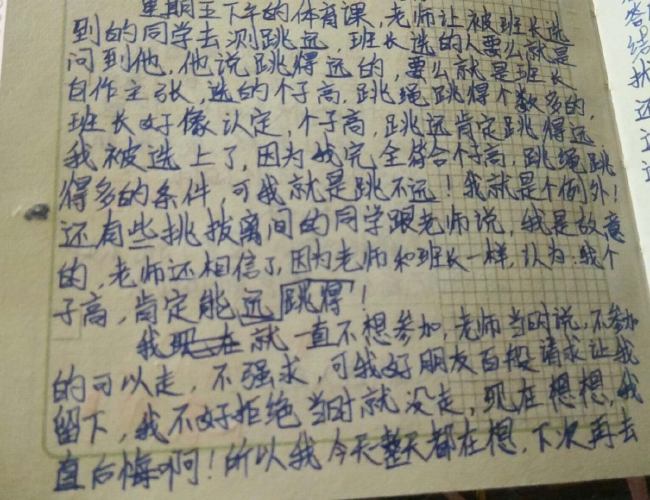 星期五下午的体育课,老师让被班长选
到的同学去测跳远,班长选的人要么就是
问到他,他说跳得远的,要么就是班长
自作主张,选的个子高,跳绳跳得个数多的,
班长好像认定,个子高,跳远肯定跳得远
我被选上了,因为我完全符合个子高,跳绳跳
得多的条件,可我就是跳不远!我就是个例外!
还有些挑拨离间的同学跟老师说,我是故意
的,老师还相信了,因为老师和班长一样,认为:我个
子高,肯定能远跳得!
我现在就一直不想参加,老师当时说,不参加
的可以走,不强求,可我好朋友百般请求让我
留下,我不好拒绝当时就没走,现在想想,我
直后悔啊!所以我今天整天都在想,下次再去